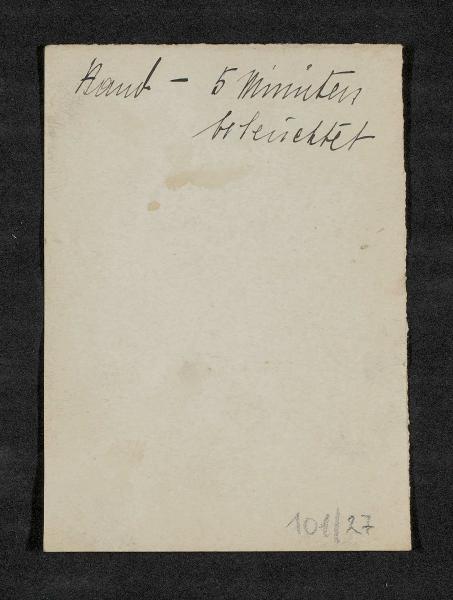 Hand - 5 Minuten
beleuchtet
101/27